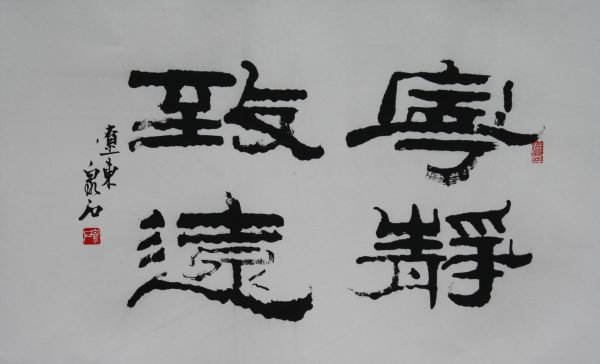 寧靜
致遠
遼東泉石